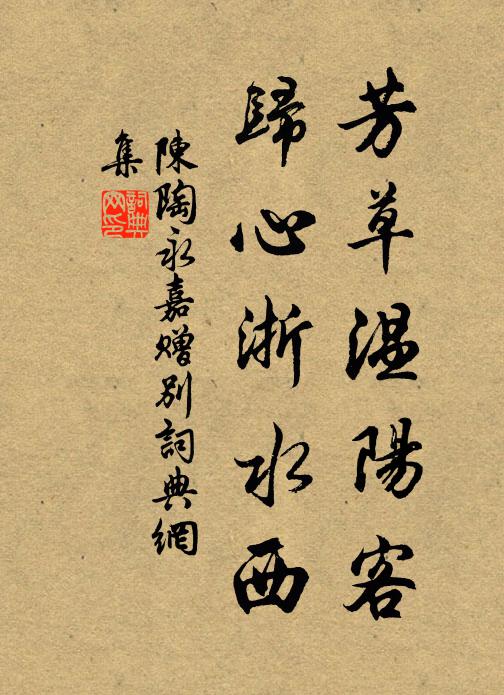 芳草温陽客
歸心浙水西
陳陶永嘉贈別詞典網
集
詞典
网印